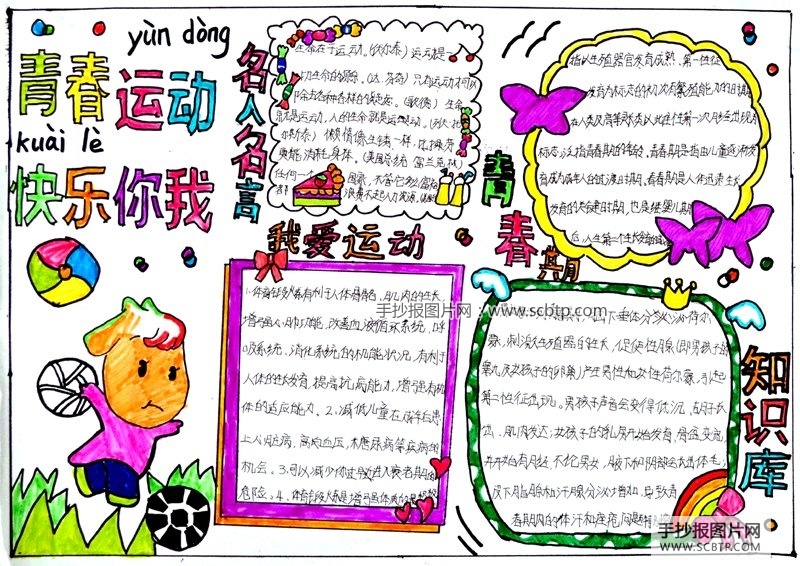 yùn dòng
青春运动
kuài lè
快乐你我
名人名言
生命在于运动。(伏尔泰) 运动是一
切生命的源泉。(达·芬奇) 只有运动才可以
除去各种各样的疑虑。(歌德) 生命
就是运动，人的生命就是运动。(列夫·托
尔斯泰) 懒惰像生锈一样，比操劳
更能消耗身体。(美国总统 富兰克林)
任何一个
国家，不管它多么富裕
浪费不起人力资源。
我爱运动
1.体育锻炼有利于人体骨骼、肌肉的生长，
增强人心肺功能，改善血液循环系统、呼
吸系统、消化系统的机能状况，有利于
人体的生长发育，提高抗病能力，增强有机
体的适应能力。2、减低儿童在成年后患
上心脏病、高血压、糖尿病等疾病的
机会。3、可以减少你过早进入衰老期的
危险。4、体育锻炼是增强体质的
青春
指以生殖器官发育成熟、第一性征
发育为标志的初次有繁殖能力的时期
在人类及高等
标志。泛指青春期的年龄。青春期是指由儿童逐渐发
育成为成年人的过渡时期。青春期是人体迅速生长
发育的关键时期，也是继婴儿期
后，人生第二个生长发育的
知识库
下垂体分泌
素，刺激生殖器的生长，促使性腺(即男孩子的
睾丸及女孩子的卵巢)产生男性和女性荷尔蒙，引起
第二性征出现。男孩子声音会变得低沉，胡子长
出，肌肉发达；女孩子的乳房开始发育，骨盆变宽，
并开始有月经。不伦男女，腋下和阴部会长出体毛；
皮下脂肪和汗腺分泌增加，导致青
春期内的体汗和痤疮问题
手抄报图片网：www.scbtp.com
手抄报图片网
WWW.SCBTP.COM